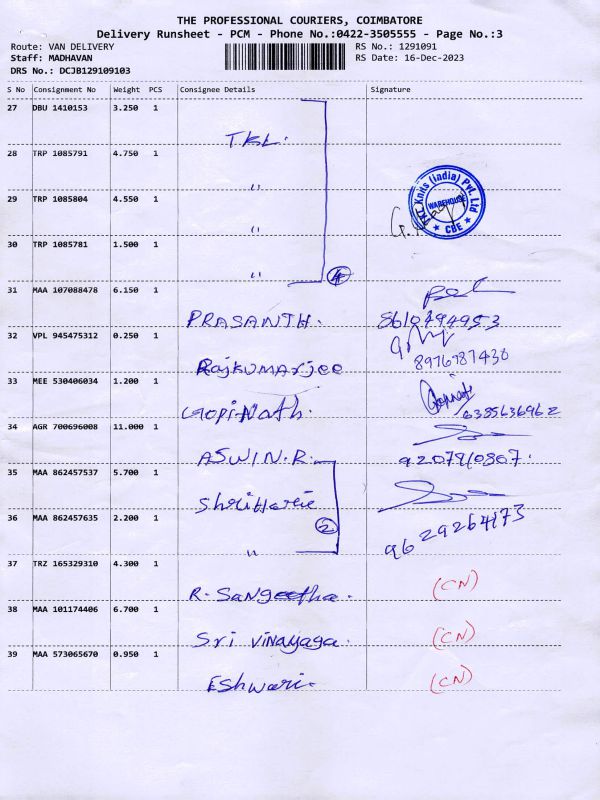 THE PROFESSIONAL COURIERS, COIMBATORE
Delivery Runsheet - PCM - Phone No.:0422-3505555 - Page No.:3
Route: VAN DELIVERY
RS No.: 1291091
Staff: MADHAVAN
RS Date: 16-Dec-2023
DRS No.: DCJB129109103
S No Consignment No Weight PCS Consignee Details Signature
27 DBU 1410153 3.250 1
TKL.
28 TRP 1085791 4.750 1
"
29 TRP 1085804 4.550 1
TKT Knits (India) Pvt. Ltd
WAREHOUSE
★ CBE ★
"
30 TRP 1085781 1.500 1
"
4
31 MAA 107088478 6.150 1
PRASANTH. 8610794953
32 VPL 945475312 0.250 1
Rajkumarjee 8976787430
33 MEE 530406034 1.200 1
Gopinath. Gopinath 6385636962
34 AGR 700696008 11.000 1
ASWIN.R. 9207910807.
35 MAA 862457537 5.700 1
ShriHarie
36 MAA 862457635 2.200 1
2
" 9629264173
37 TRZ 165329310 4.300 1
R. Sangeetha. (CN)
38 MAA 101174406 6.700 1
Sri Vinayaga. (CN)
39 MAA 573065670 0.950 1
Eshwari. (CN)